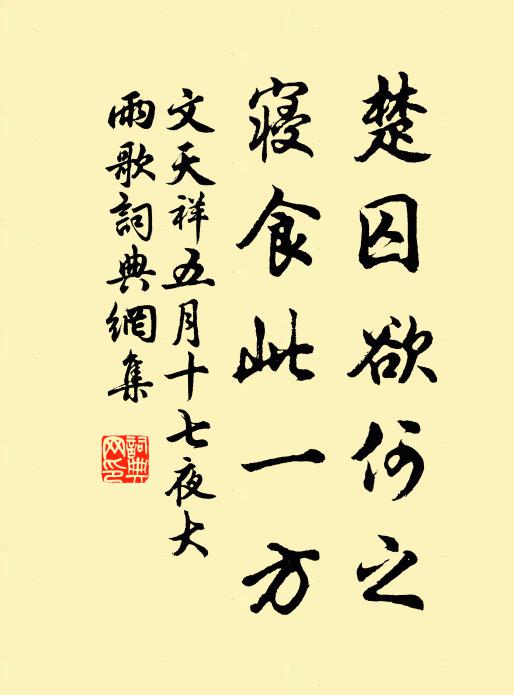 楚囚欲何之
寢食此一方
文天祥五月十七夜大
雨歌詞典網集
詞典
网印